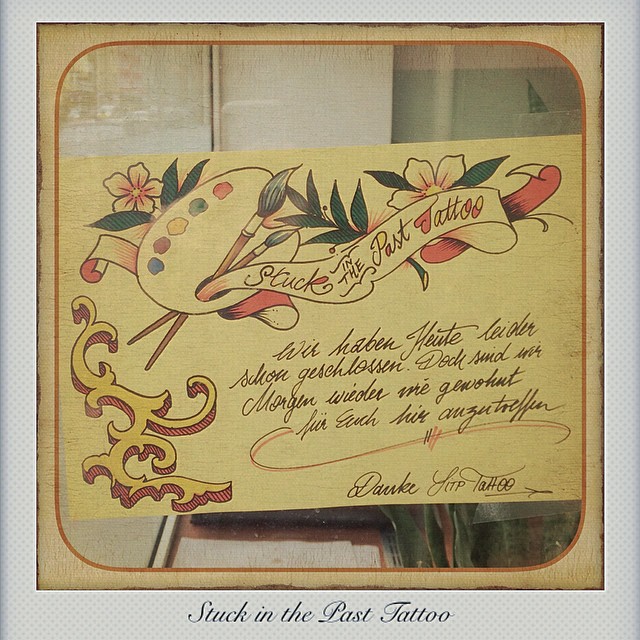 Stuck IN THE Past Tattoo
Wir haben Heute leider
schon geschlossen. Doch sind wir
Morgen wieder wie gewohnt
für Euch hier anzutreffen
Danke SITP TaTTOO
Stuck in the Past Tattoo